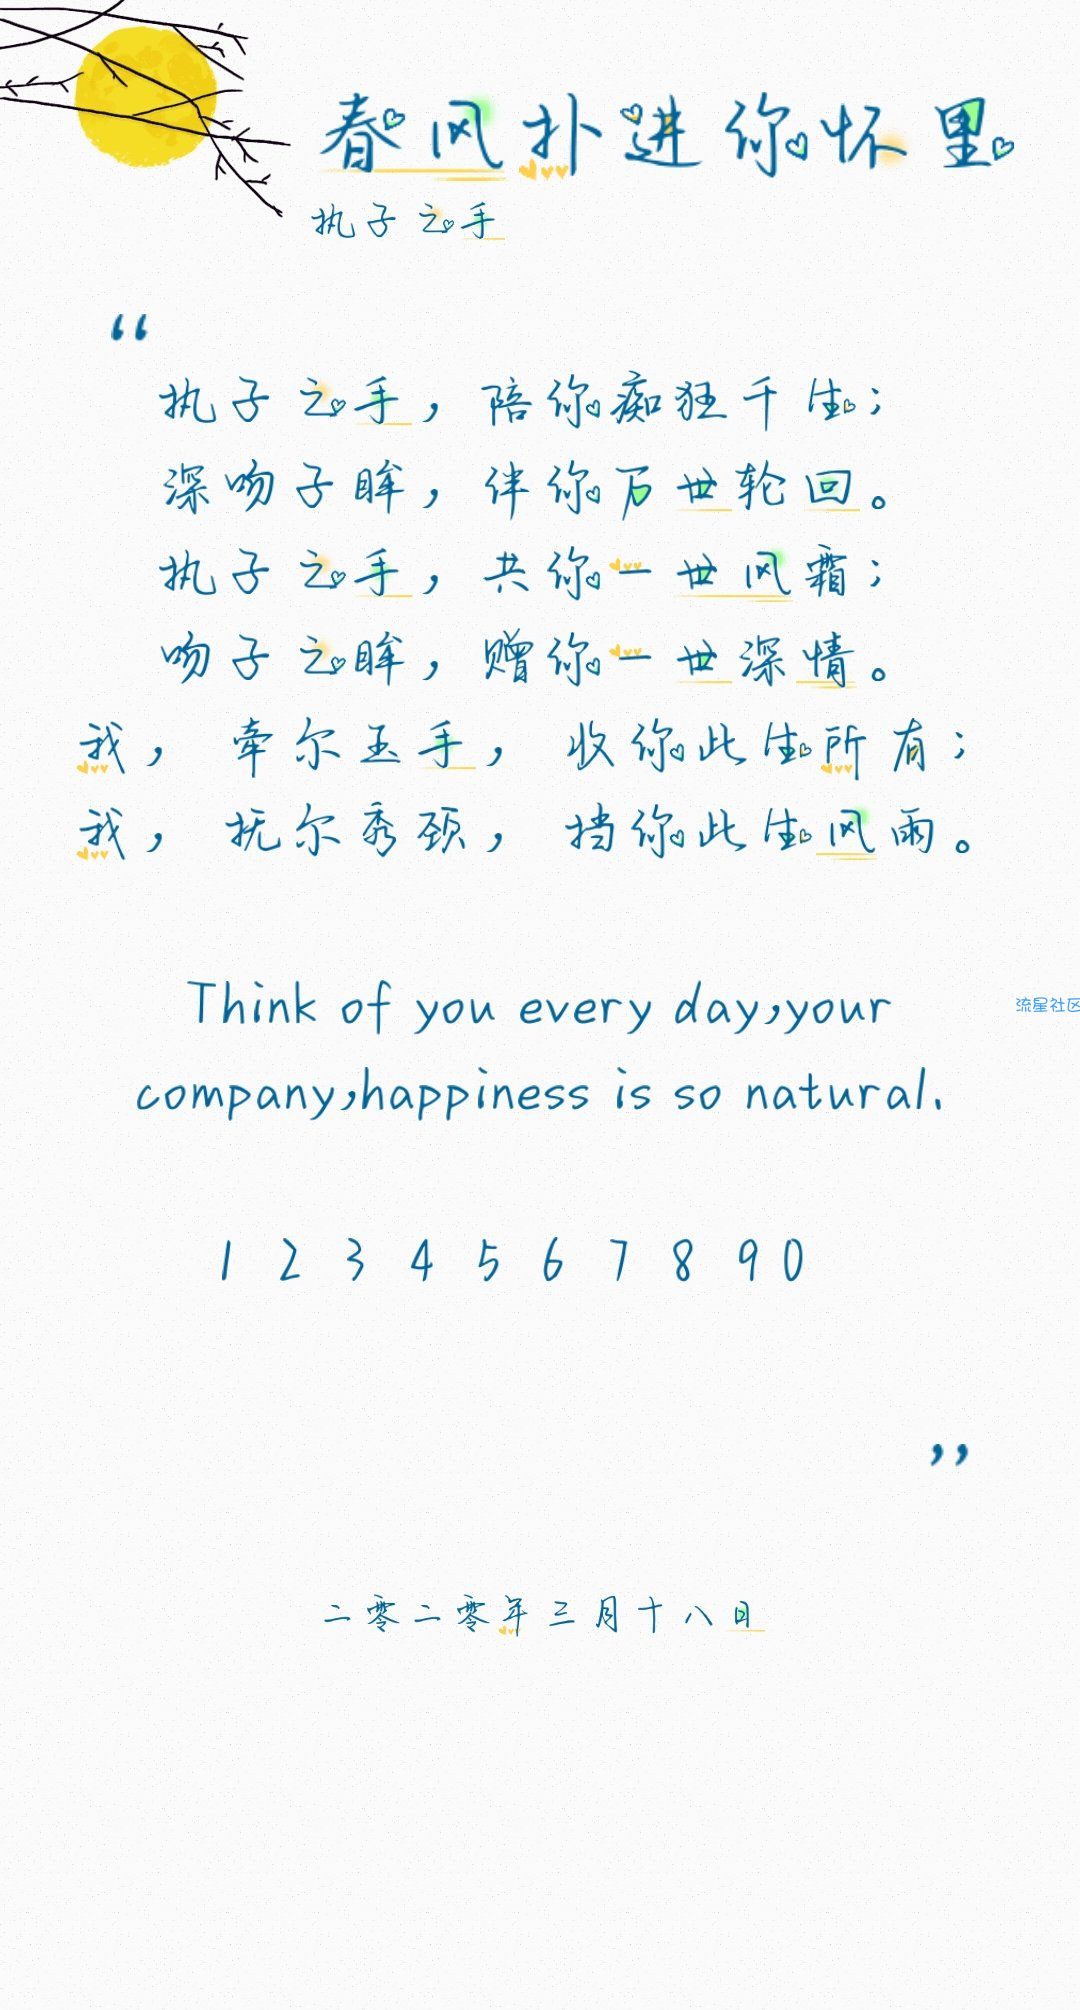 春风扑进你怀里
执子之手
“
执子之手，陪你痴狂千生；
深吻子眸，伴你万世轮回。
执子之手，共你一世风霜；
吻子之眸，赠你一世深情。
我，牵尔玉手，收你此生所有；
我，抚尔秀颈，挡你此生风雨。
Think of you every day,your
流星社区
company,happiness is so natural.
1 2 3 4 5 6 7 8 9 0
”
二零二零年三月十八日